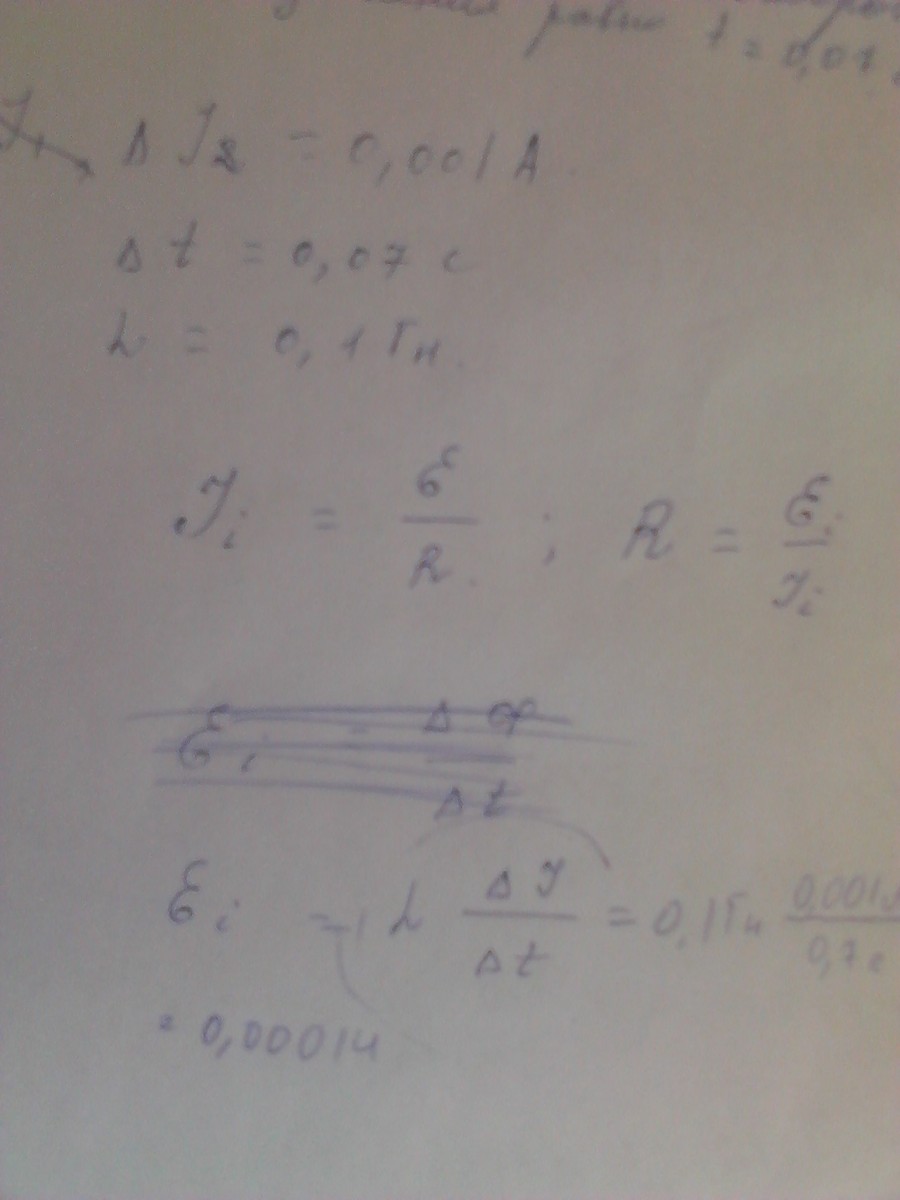 равно t
= 0,07
Δ I₂ = 0,001 A
Δ t = 0,07 с
L = 0,1 Гн.
I i = ℰ / R ; R = ℰ i / I i
ℰ i = Δ Φ / Δ t
ℰ i = - L Δ I / Δ t = 0,1 Гн 0,001 / 0,7 с
= 0,00014